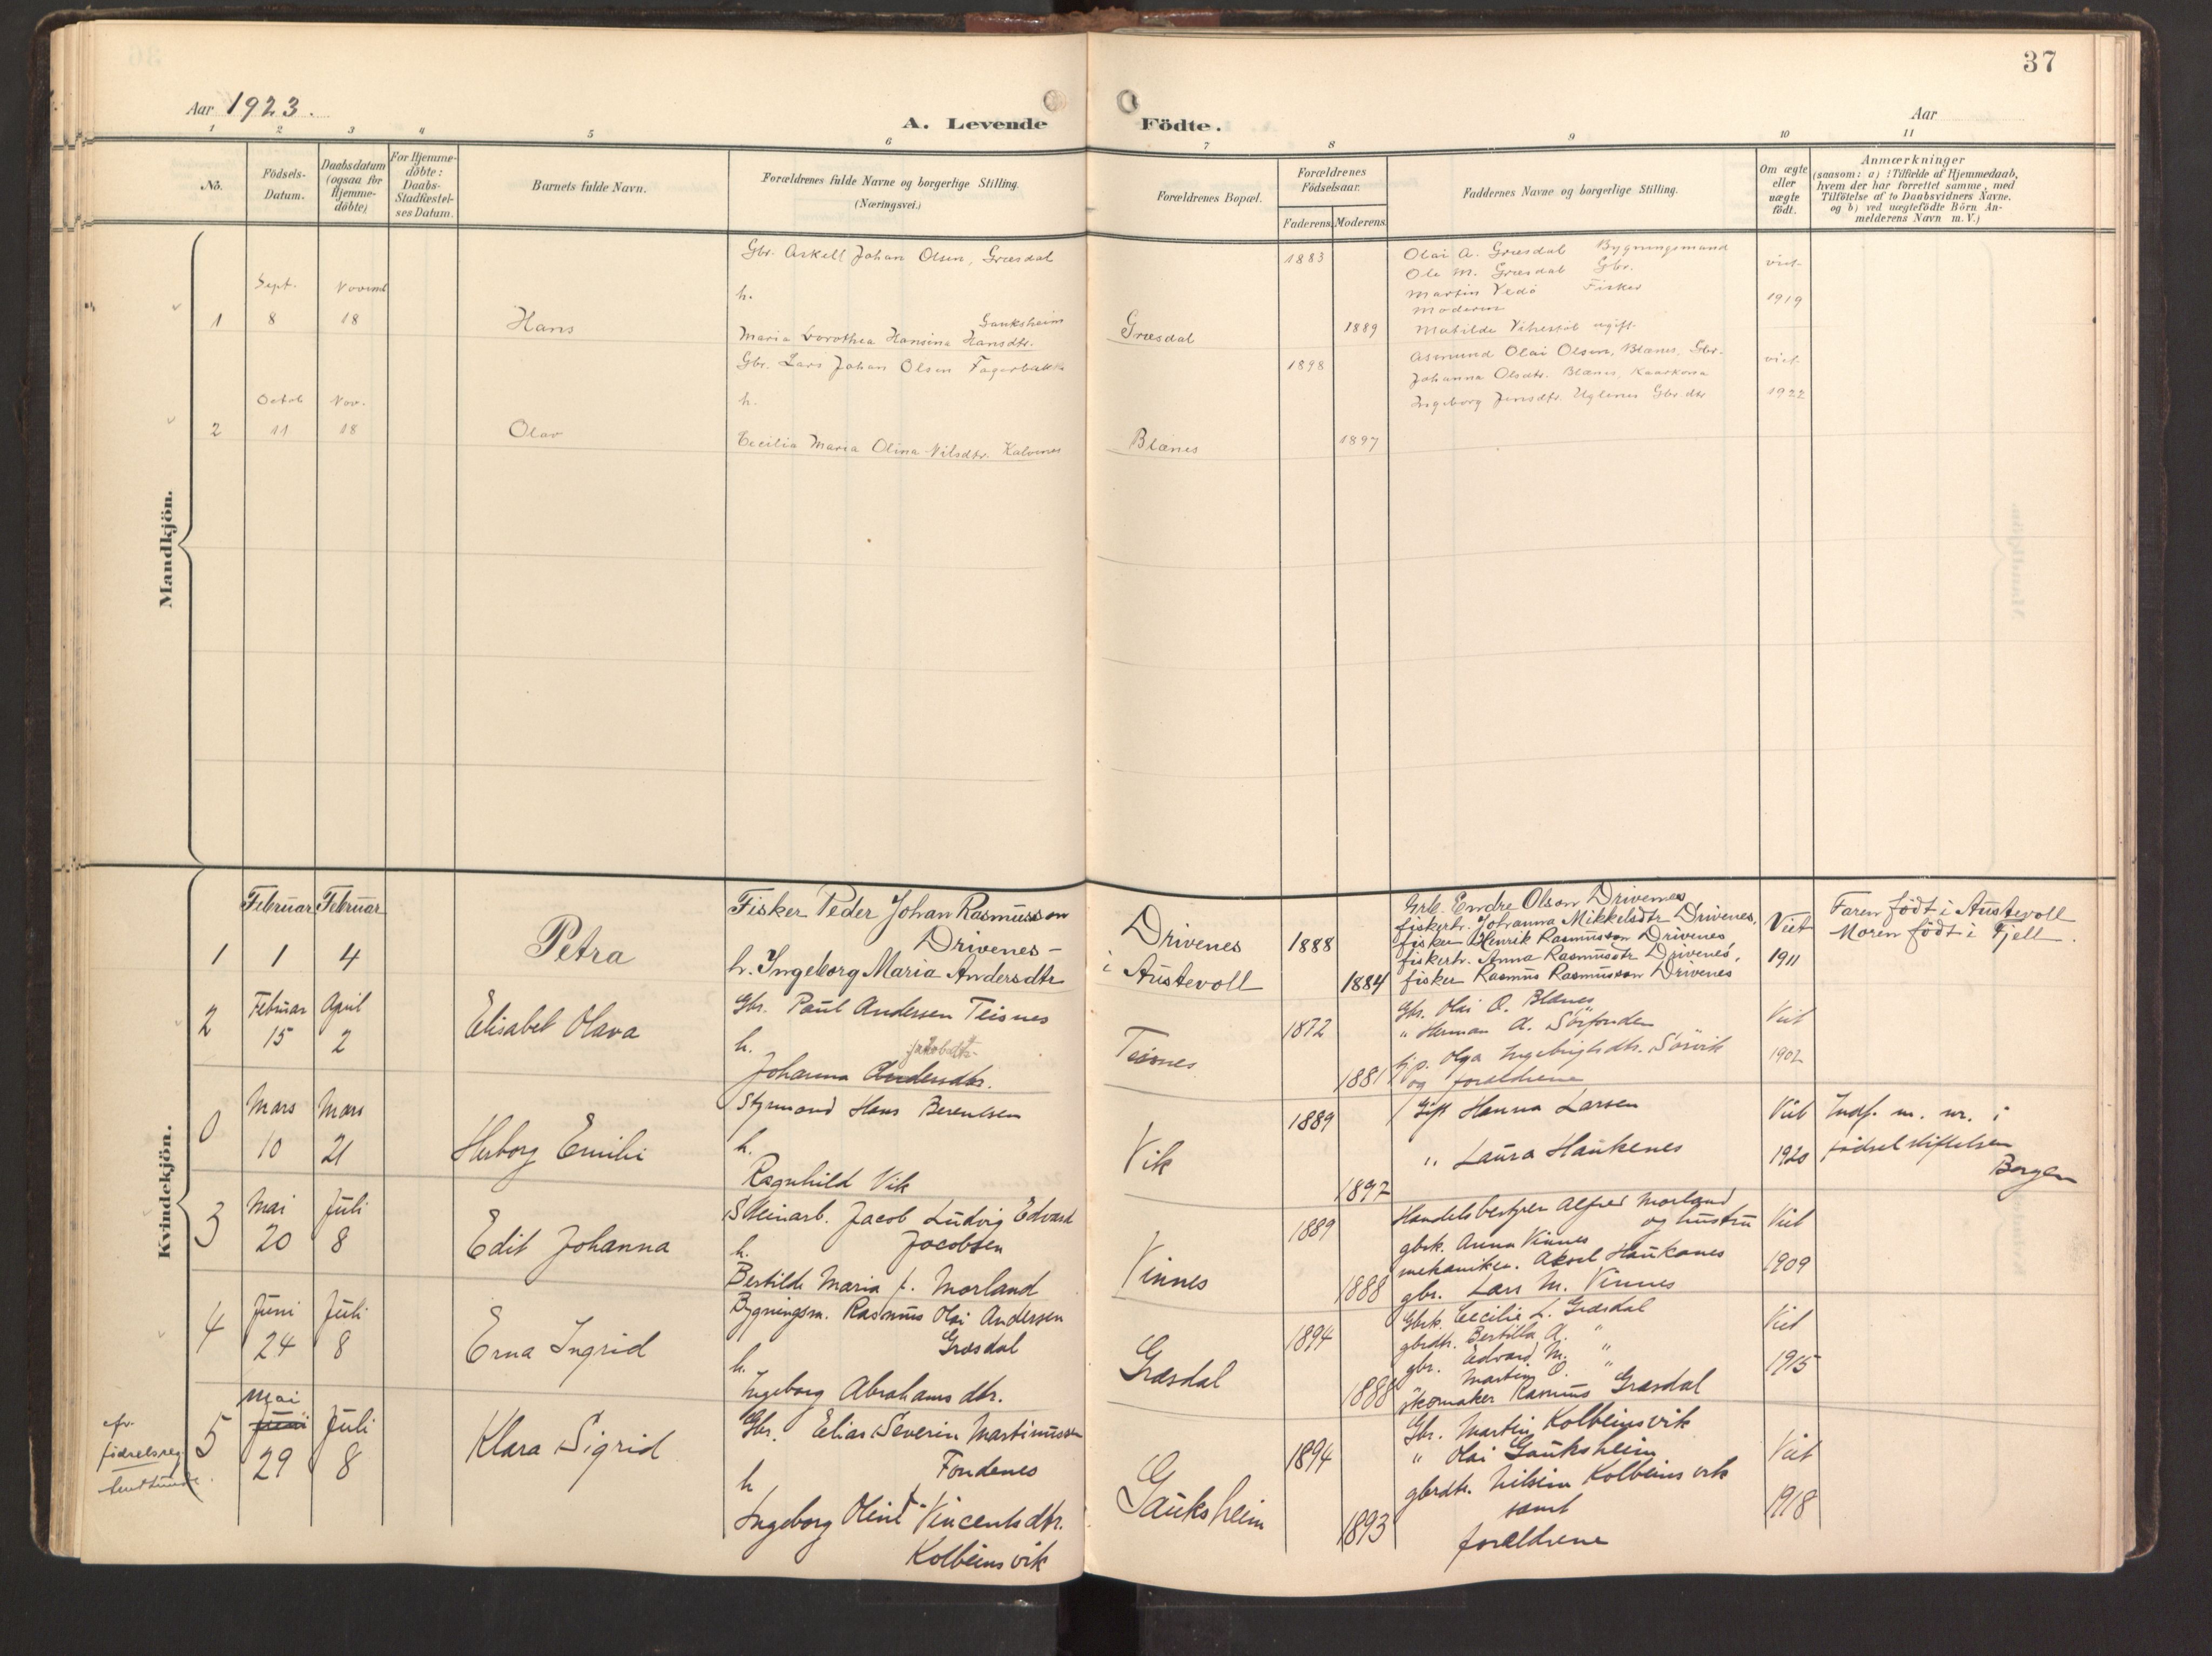 37
Aar 1923.
A. Levende Födte.
Aar
1 2 3 4 5 6 7 8 9 10 11
No.
Födsels-Datum.
Daabsdatum (ogsaa for Hjemme-döbte)
For Hjemme-döbte: Daabs-Stadfæstel-ses Datum.
Barnets fulde Navn.
Forældrenes fulde Navne og borgerlige Stilling.
(Næringsvei.)
Forældrenes Bopæl.
Forældrenes Födselsaar.
Faderens Moderens
Faddernes Navne og borgerlige Stilling.
Om ægte eller uægte födt.
Anmærkninger
(saasom: a) i Tilfælde af Hjemmedaab,
hvem der har forrettet samme, med
Tilföielse af to Daabsvidners Navne.
og b) ved uægtefödte Börn An-
melderens Navn m. V.)
Mandkjön.
1
Sept. 8
Novemb 18
Hans
Gbr. Askell Johan Olsen, Græsdal
h. Gauksheim
Maria Dorothea Hansina Hansdtr.
Græsdal
1883
1889
Olai A. Græsdal Bygningsmand
Ole M. Græsdal Gbr.
Martin Vedö Fisker
Moderen
Matilde ugift.
viet
1919
2
Octob 11
Nov. 18
Olav
Gbr. Lars Johan Olsen Fagerbakke
h.
Cecilia Maria Olina Nilsdtr. Kalvenes
Blænes
1898
1897
Asmund Olai Olsen, Blænes, Gbr.
Johanna Olsdtr. Blænes, Kaarkona
Ingeborg Jensdtr. Uglenes Gbr.dtr
viet
1922
Kvindekjön.
1
Februar 1
Februar 4
Petra
Fisker Peder Johan Rasmusson
Drivenes -
h. Ingeborg Maria Andersdtr
Drivenes
i Austevoll
1888
1884
Grb. Endre Olson Drivenes
fiskerh. Johanna Mikkelsdtr Drivenes,
fisker Henrik Rasmusson Drivenes
fiskerh. Anna Rasmusdtr Drivenes,
fisker Rasmus Rasmusson Drivenes
Viet
1911
Faren födt i Austevoll
Moren födt i Fjell.
2
Februar 15
April 2
Elisabet Olava
Gbr. Paul Andersen Teisnes
h. Jakobdtr.
Johanna Andersdtr.
Teisnes
1872
1881
Gbr. Olai O. Blænes
" Herman A. Sörfonden
p. Olga Ingebrigtsdtr. Sörvik
og forældrene
Viet
1902
0
Mars 10
Mars 21
Herborg Emilie
Styrmand Hans Berentsen
h.
Ragnhild Vik
Vik
1889
1897
Gift Hanna Larsen
" Laura Haukenes
Viet
1920
Indf. u. nr. i
födselstiftelsen
Bergen
3
Mai 20
Juli 8
Edit Johanna
Steinarb. Jacob Ludvig Edvard
h. Jacobsen
Bertilde Maria f. Morland
Vinnes
1889
1888
Handelsbestyrer Alfred Morland
og hustru
gbrk. Anna Vinnes
mekaniker. Aksel Haukanes
gbr. Lars M. Vinnes
Viet
1909
4
Juni 24
Juli 8
Erna Ingrid
Bygningsm. Rasmus Olai Andersen
Græsdal
h.
Ingeborg Abrahamsdtr.
Græsdal
1894
1888
Gbrk. Cecilie L. Græsdal
gbrdtr. Bertilla A. "
gbr. Edvard M. "
" Martin O. "
skomaker Rasmus Græsdal
Viet
1915
cfr. födselsreg
5
Mai
Juni 29
Juli 8
Klara Sigrid
Gbr. Elias Severin Martinussen
Fondenes
h
Ingeborg Olina Vincentsdtr.
Kolbeinsvik
Gauksheim
1894
1893
Gbr. Martin Kolbeinsvik
" Olai Gauksheim
gbrdtr. Nilsina Kolbeinsvik
samt
forældrene
Viet
1918